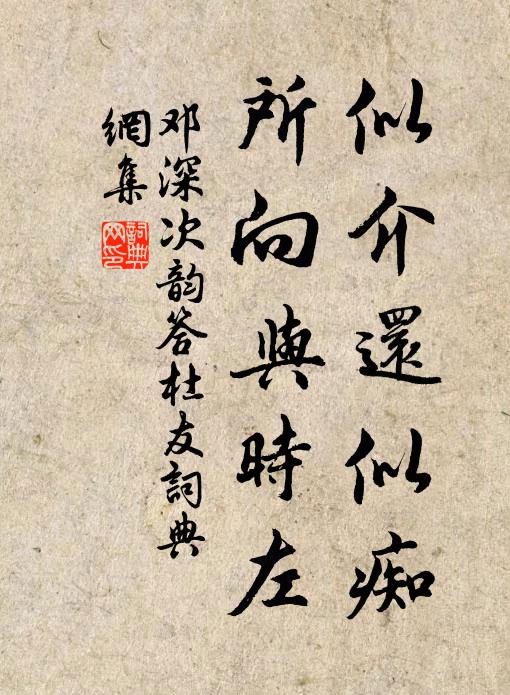 似介還似痴
所向與時左
邓深次韵答杜友詞典
網集
詞典
网印